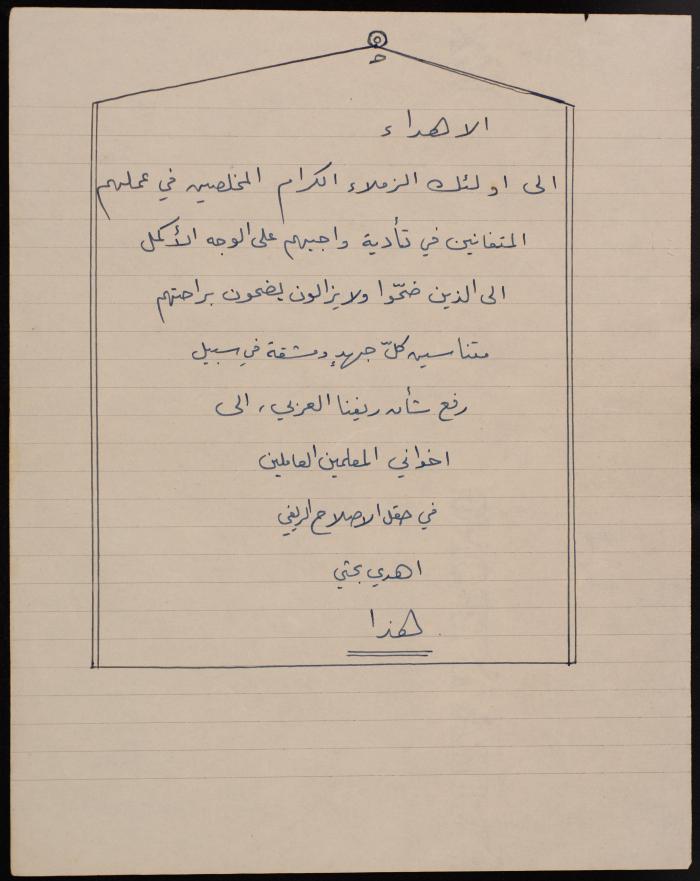 الاهداء
الى اولئك الزملاء الكرام المخلصين في عملهم
المتفانين في تأدية واجبهم على الوجه الأكمل
الى الذين ضحّوا ولا يزالون يضحون براحتهم
متناسين كلّ جهدٍ ومشقة في سبيل
رفع شأن ريفنا العربي، الى
اخواني المعلمين العاملين
في حقل الاصلاح الريفي
اهدي بحثي
هذا